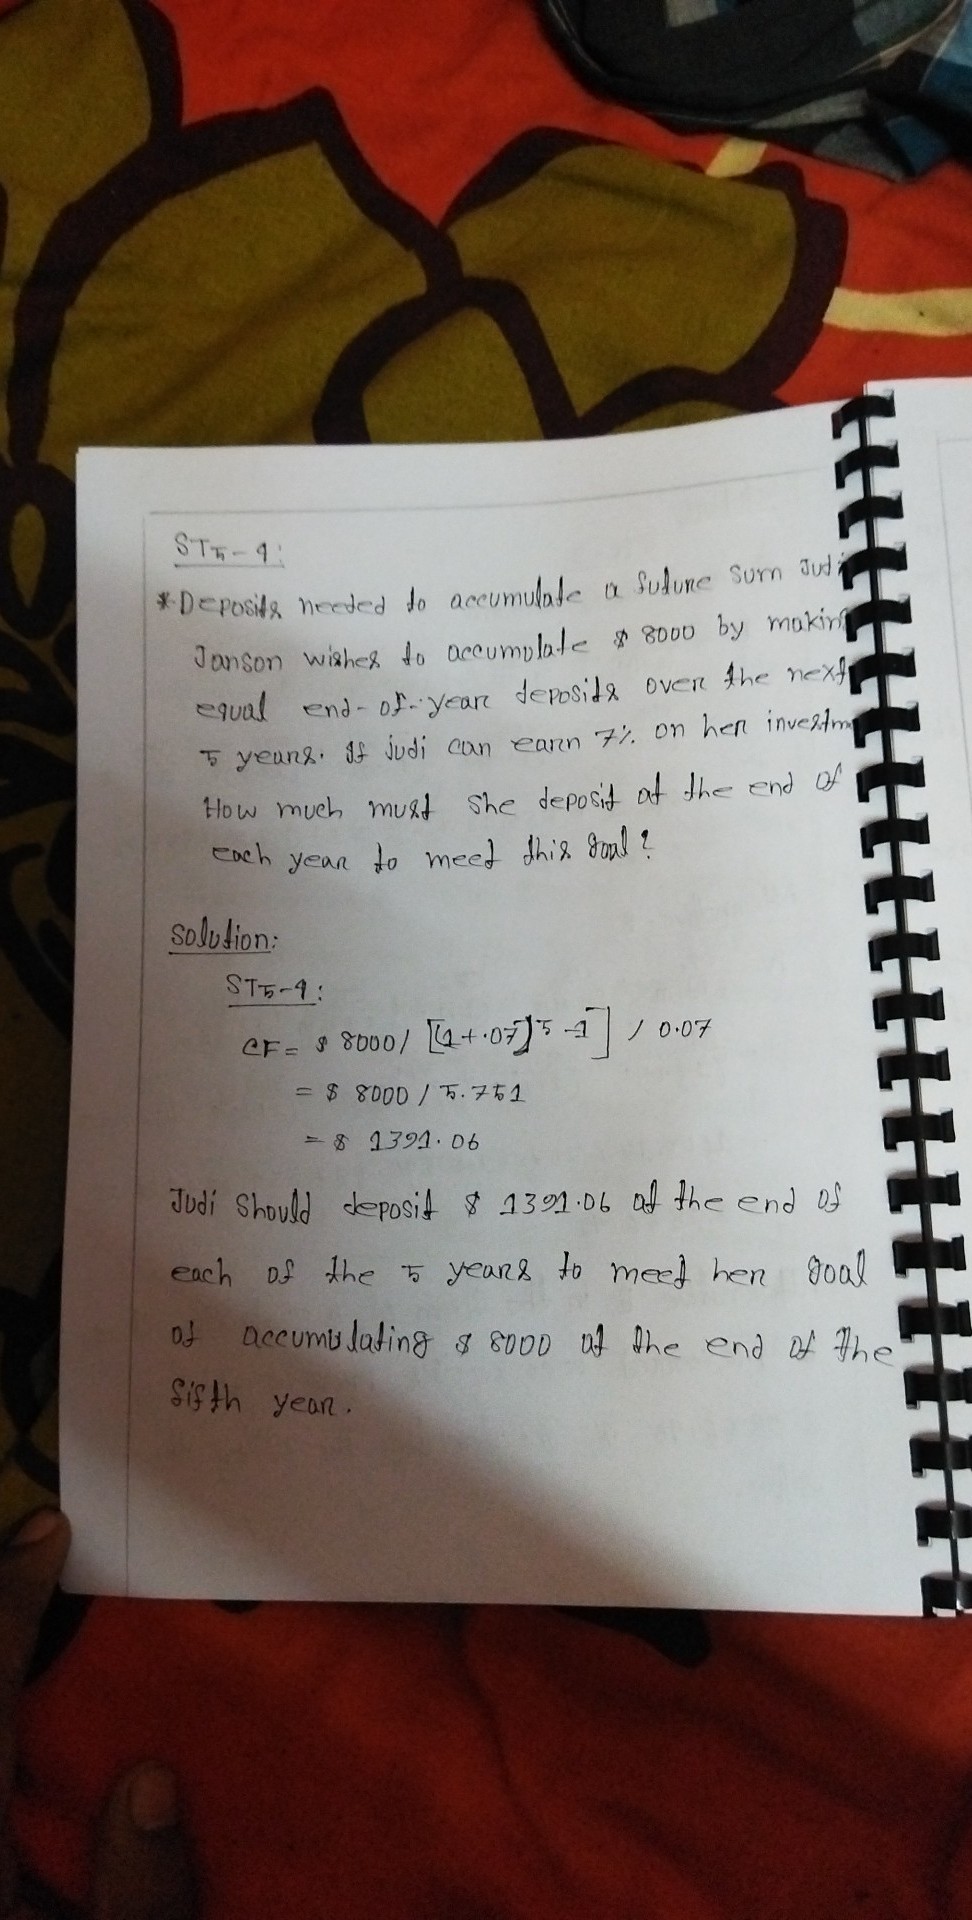 ST5-4:
*Deposits needed to accumulate a future sum Judi
Janson wishes to accumulate $ 8000 by making
equal end-of-year deposits over the next
5 years. If judi can earn 7% on her investm
How much must she deposit at the end of
each year to meet this goal?
Solution:
ST5-4:
CF = $ 8000 / [(1+.07)]5 -1] / 0.07
= $ 8000 / 5.751
= $ 1391.06
Judi Should deposit $ 1391.06 at the end of
each of the 5 years to meet her goal
of accumulating $ 8000 at the end of the
fifth year.